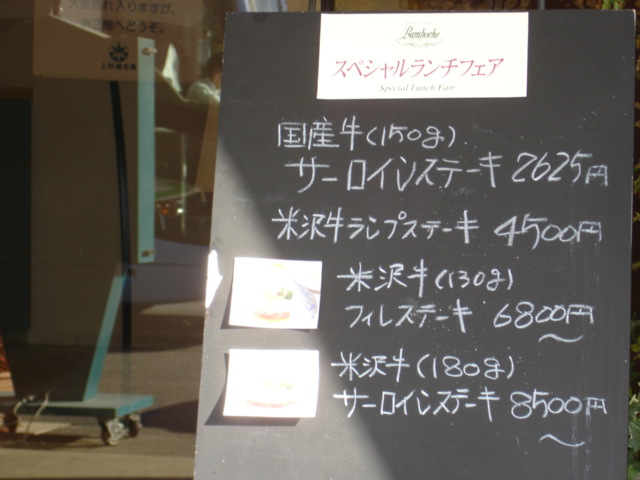 大変恐れ入りますが、
お2階へどうぞ。
Bamboche
スペシャルランチフェア
Special Lunch Fair
国産牛(150g)
サーロインステーキ 2625円
米沢牛ランプステーキ 4500円
米沢牛(130g)
フィレステーキ 6800円
〜
米沢牛(180g)
サーロインステーキ 8500円
〜